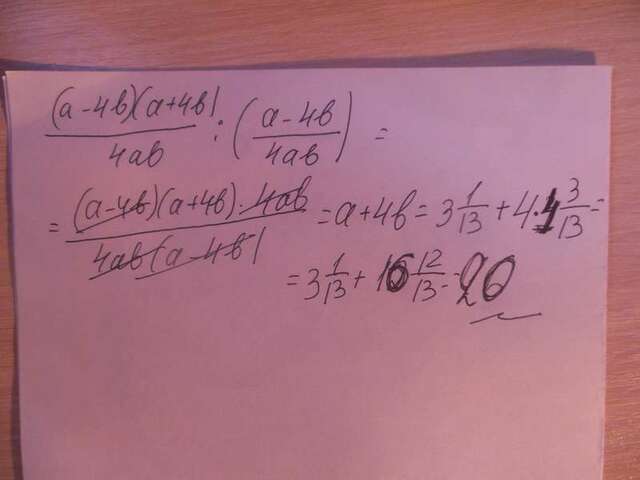 (a-4b)(a+4b) / 4ab : (a-4b / 4ab) =
= (a-4b)(a+4b)·4ab / 4ab(a-4b) = a+4b = 3 1/13 + 4·4 3/13 =
= 3 1/13 + 16 12/13 = 20